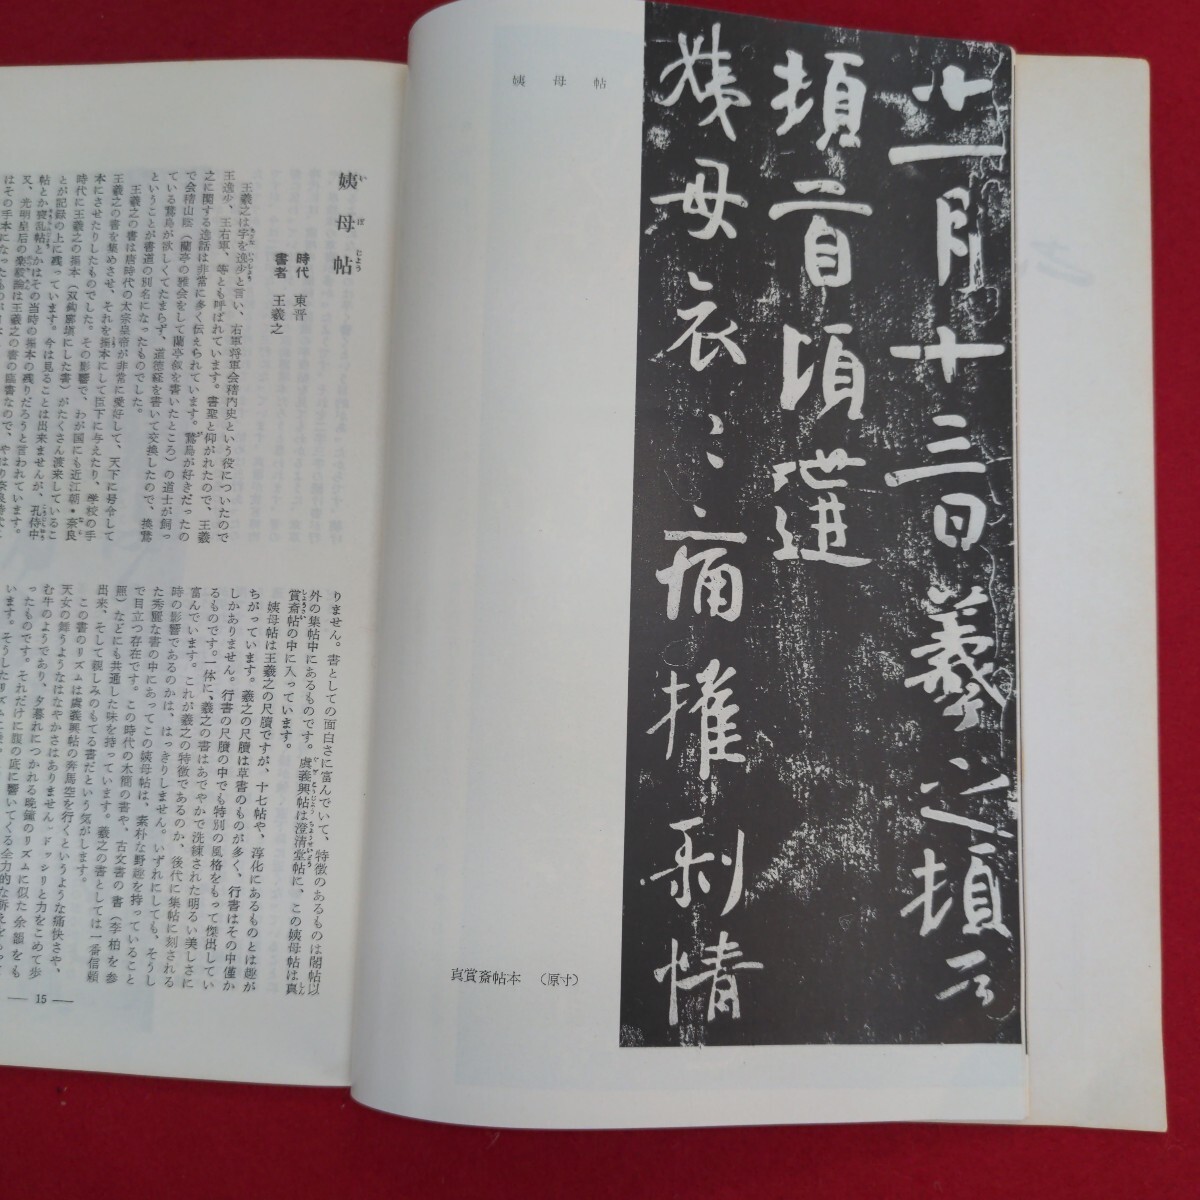 姨母帖
十一月十三日羲之頓首
頓首頃遘
姨母哀〻痛摧剥情
真賞斎帖本　（原寸）
姨母帖
時代　東晋
書者　王羲之
王羲之は字を逸少と言い、右軍将軍会稽内史という役についたので
王逸少、王右軍、等とも呼ばれています。書聖と仰がれたので、王羲
之に関する逸話は非常に多く伝えられています。鵞鳥が好きだったの
で会稽山陰（蘭亭の雅会をして蘭亭叙を書いたところ）の道士が飼っ
ている鵞鳥が欲しくてたまらず、道徳経を書いて交換したので、換鵞
ということが書道の別名になったものでした。
王羲之の書は唐時代の太宗皇帝が非常に愛好して、天下に号令して
王羲之の書を集めさせ、それを搨本にして臣下に与えたり、学校の手
本にさせたりしたものでした。その影響で、わが国にも近江朝・奈良
時代に王羲之の搨本（双鉤廓塡にした書）がたくさん渡来しているこ
とが記録の上に残っています。今は見ることは出来ませんが、孔侍中
帖とか喪乱帖とかはその当時の搨本の残りだろうと言われています。
又、光明皇后の楽毅論は王羲之の書の臨書なので、やはり奈良時代に
はその手本になったものが
りません。書としての面白さに富んでいて、特徴のあるものは閣帖以
外の集帖中にあるものです。虞義興帖は澄清堂帖に、この姨母帖は真
賞斎帖の中に入っています。
姨母帖は王羲之の尺牘ですが、十七帖や、淳化にあるものとは趣が
ちがっています。羲之の尺牘は草書のものが多く、行書はその中僅か
しかありません。行書の尺牘の中でも特別の風格をもって傑出してい
るものです。一体に、羲之の書はあでやかで洗練された明るい美しさに
富んでいます。これが羲之の特徴であるのか、後代に集帖に刻される
時の影響であるのかは、はっきりしません。いずれにしても、そうし
た秀麗な書の中にあってこの姨母帖は、素朴な野趣を持っていること
で目立つ存在です。この時代の木簡の書や、古文書の書（李柏を参
照）などにも共通した味を持っています。羲之の書としては一番信頼
出来、そして親しみのもてる書だという気がします。
この書のリズムは虞義興帖の奔馬空を行くというような痛快さや、
天女の舞うようなはなやかさはありません。ドッシリと力をこめて歩
む牛のようであり、夕暮れにつかれる晩鐘のリズムに似た余韻をも
ったものです。それだけに腹の底に響いてくる全力的な訴えをもって
います。そうしたリズムは
— 15 —